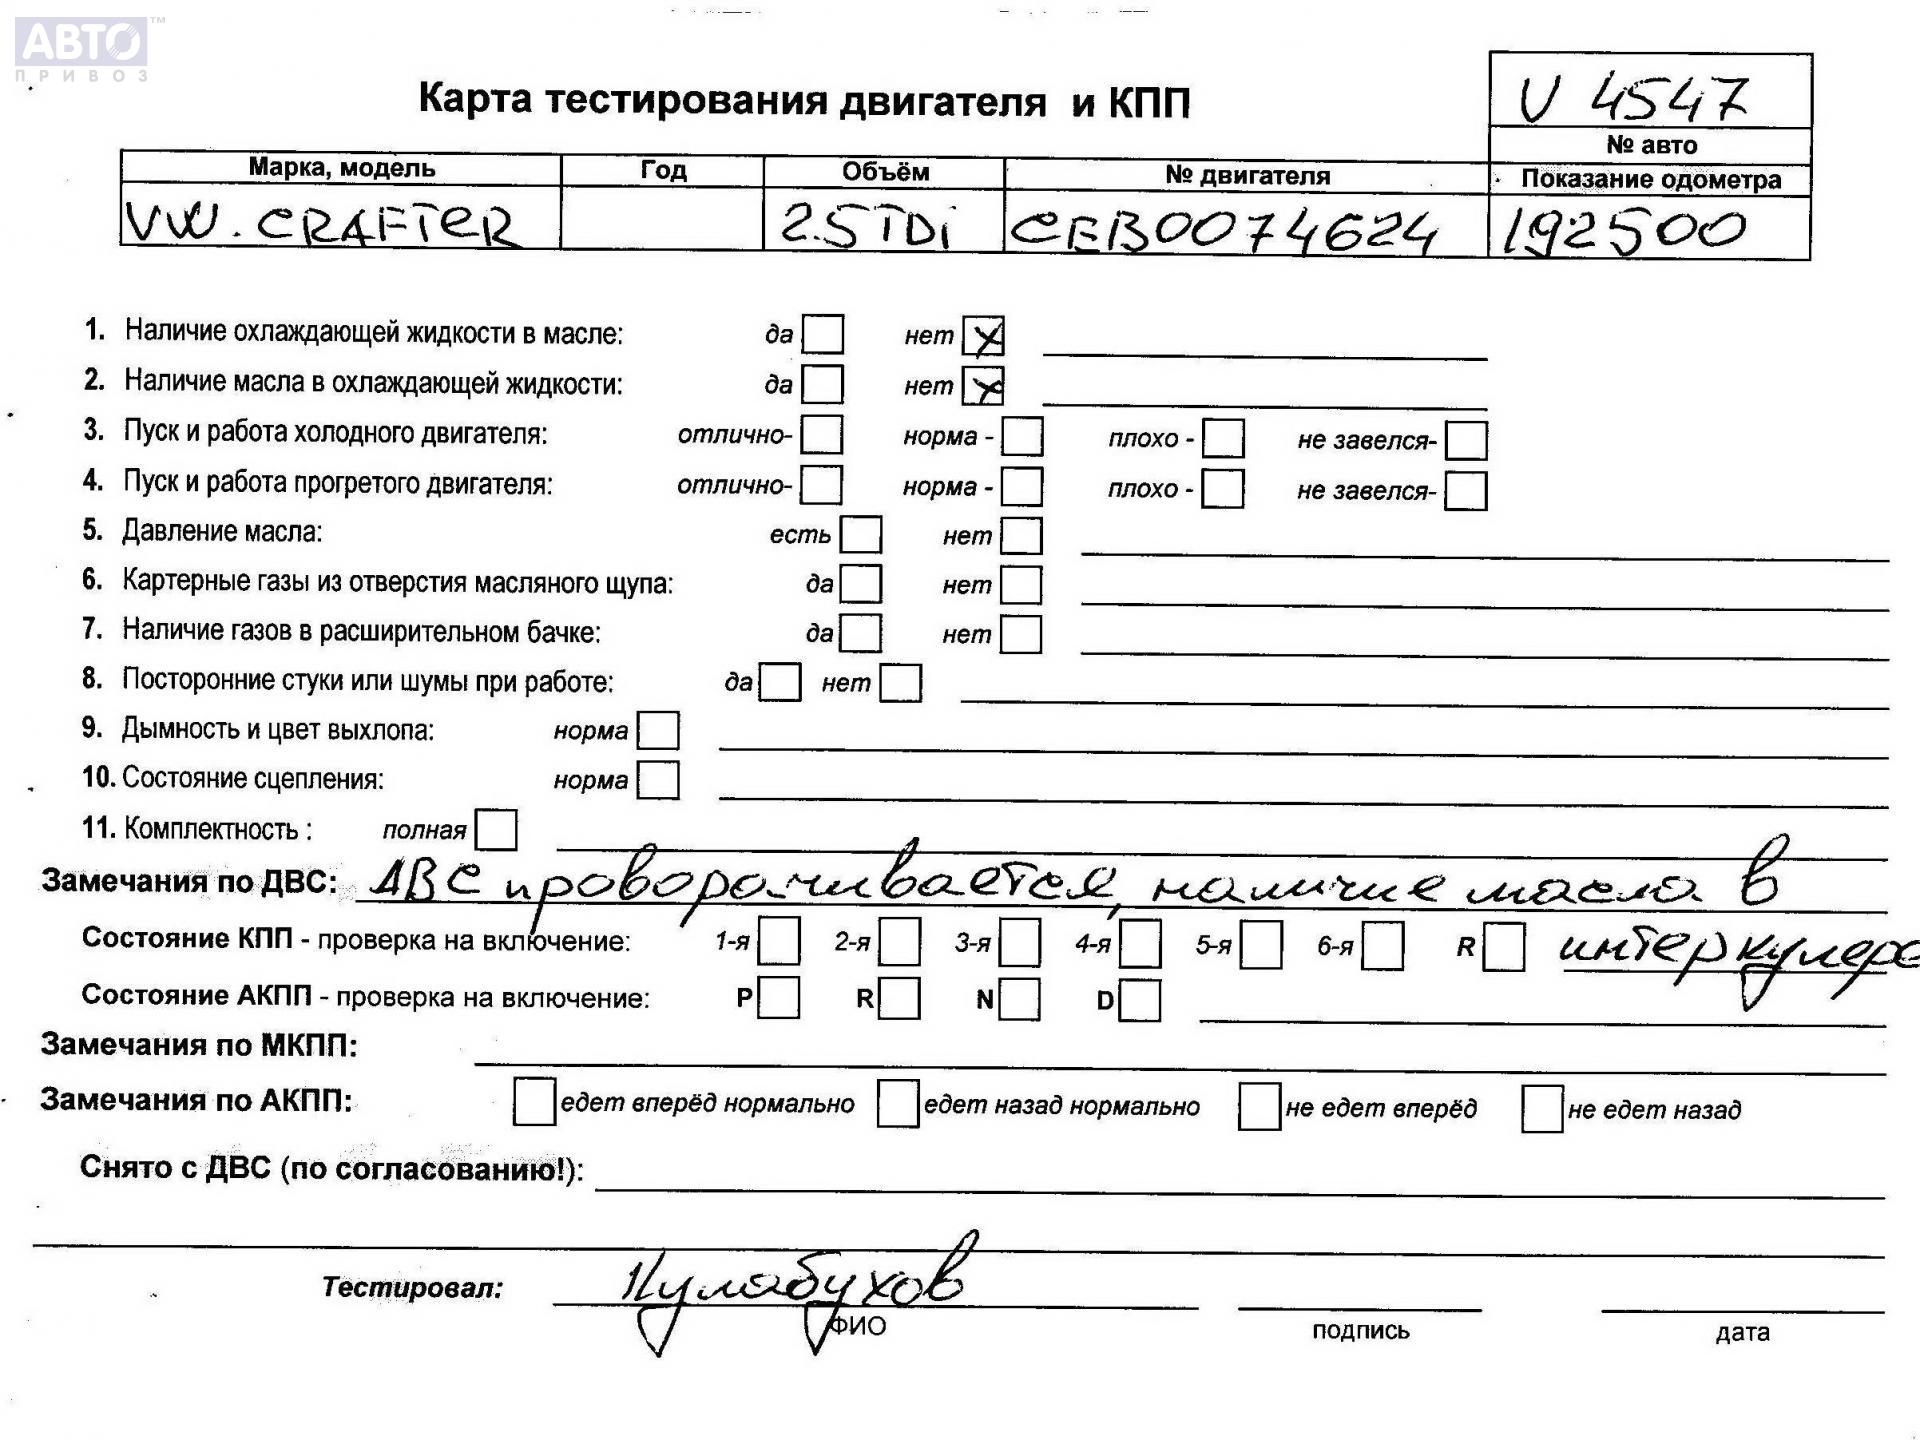 АВТО™
ПРИВОЗ
Карта тестирования двигателя и КПП
V 4547
№ авто
Марка, модель Год Объём № двигателя Показание одометра
VW. CRAFTER 2.5TDi CEB0074624 192500
1. Наличие охлаждающей жидкости в масле: да нет x
2. Наличие масла в охлаждающей жидкости: да нет x
3. Пуск и работа холодного двигателя: отлично- норма - плохо - не завелся-
4. Пуск и работа прогретого двигателя: отлично- норма - плохо - не завелся-
5. Давление масла: есть нет
6. Картерные газы из отверстия масляного щупа: да нет
7. Наличие газов в расширительном бачке: да нет
8. Посторонние стуки или шумы при работе: да нет
9. Дымность и цвет выхлопа: норма
10. Состояние сцепления: норма
11. Комплектность : полная
Замечания по ДВС: ДВС проворачивается, наличие масла в
Состояние КПП - проверка на включение: 1-я 2-я 3-я 4-я 5-я 6-я R интеркулере
Состояние АКПП - проверка на включение: P R N D
Замечания по МКПП:
Замечания по АКПП: едет вперёд нормально едет назад нормально не едет вперёд не едет назад
Снято с ДВС (по согласованию!):
Тестировал: Кулабухов
ФИО подпись дата